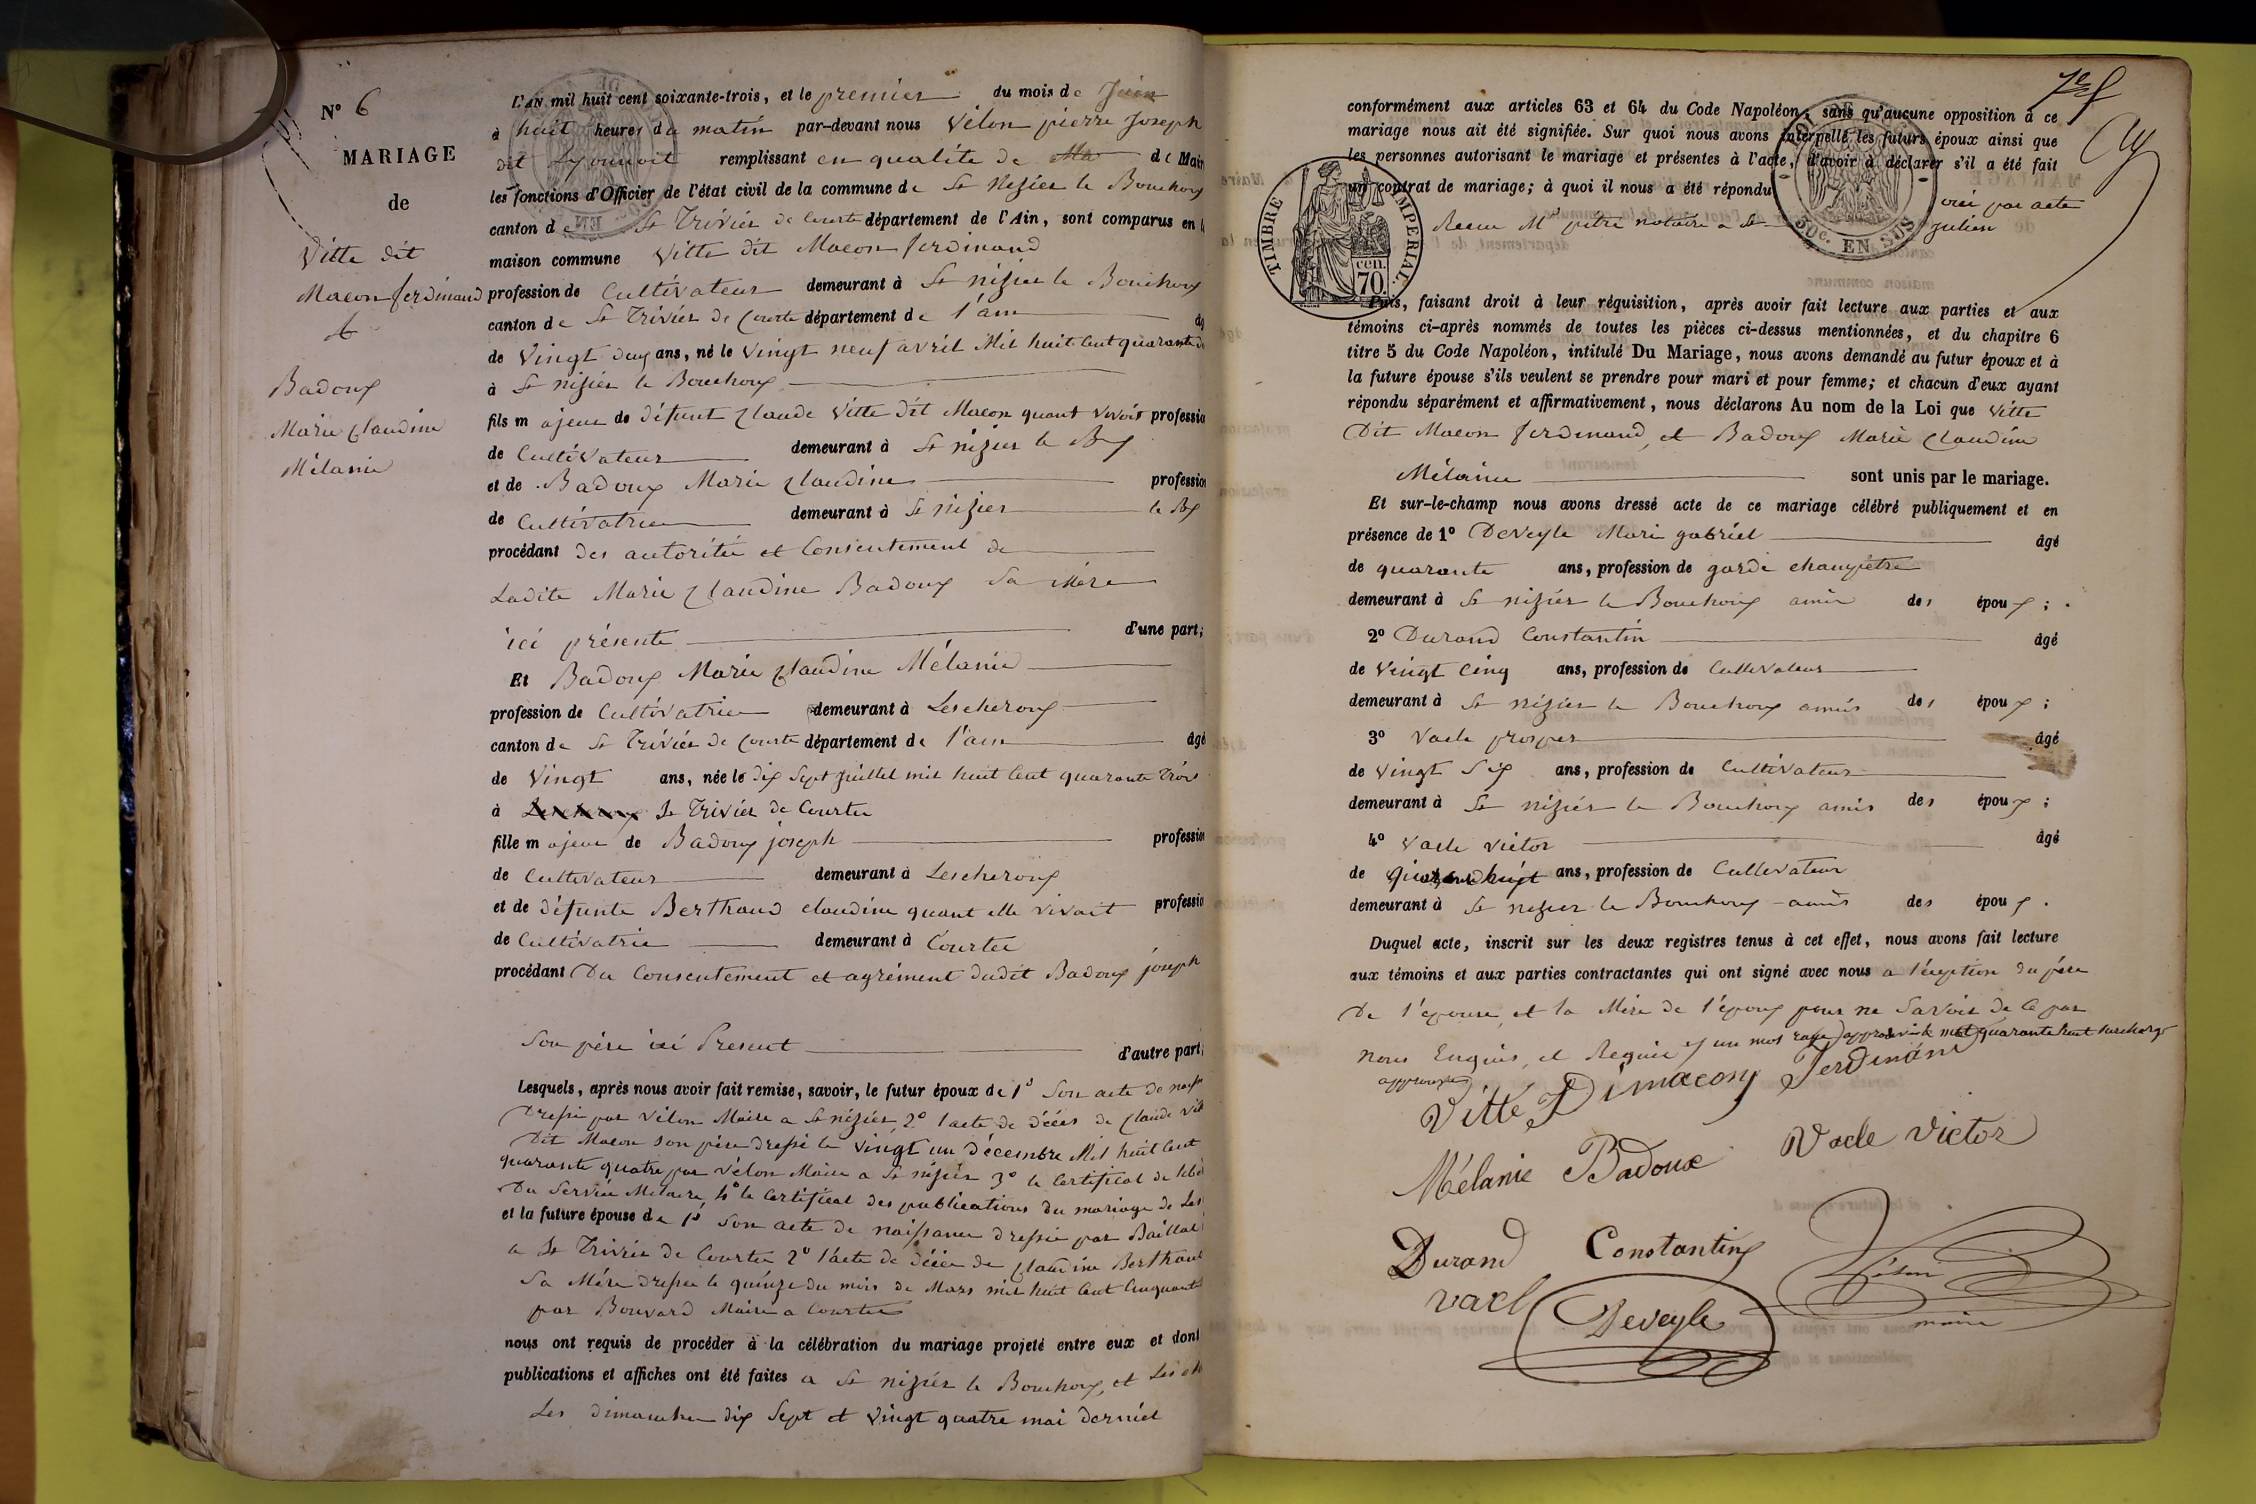 N° 6
MARIAGE
de
Vitte dit
Macon ferdinand
et
Badoux
Marie Claudine
Mélanie
L'AN mil huit cent soixante-trois, et le premier du mois de Juin
à huit heures du matin par-devant nous Vélon pierre Joseph
dit Lyonnoit remplissant en qualité de de Maire
les fonctions d'Officier de l'état civil de la commune de St Nizier le Bouchoux
canton de St Trivier de Courte département de l'Ain, sont comparus en la
maison commune Vitte dit Macon ferdinand
profession de Cultivateur demeurant à St nizier le Bouchoux
canton de St Trivier de Courte département de l'ain âgé
de Vingt deux ans, né le Vingt neuf avril Mil huit Cent quarante
à St nizier le Bouchoux
fils majeur de défunt Claude Vitte Dit Macon quant vivoit profession
de Cultivateur demeurant à St nizier le Bx
et de Badoux Marie Claudine profession
de Cultivatrice demeurant à St nizier le Bx
procédant des autorité et Consentement de
Ladite Marie Claudine Badoux Sa Mère
ici présente d'une part;
Et Badoux Marie Claudine Mélanie
profession de Cultivatrice demeurant à Lescheroux
canton de St Trivier de Courte département de l'ain âgé
de Vingt ans, née le dix Sept Juillet mil huit Cent quarante Trois
à Lescheroux St Trivier de Courtes
fille majeure de Badoux joseph profession
de Cultivateur demeurant à Lescheroux
et de défunte Berthaud Claudine quant elle vivait profession
de Cultivatrice demeurant à Courtes
procédant Du Consentement et agrément dudit Badoux joseph
Son père ici Present d'autre part;
Lesquels, après nous avoir fait remise, savoir, le futur époux de 1° Son acte de naissance
Dressé par Vélon Maire a St nizier, 2° l'acte de décès de Claude Vitte
Dit Macon son père dressé le Vingt un Décembre Mil huit Cent
quarante quatre par Vélon Maire a St nizier 3° le Certificat de
Du Service Militaire, 4° le Certificat des publications du mariage de Les
et la future épouse de 1° Son acte de naissance dressé par Baillat
a St Trivier de Courtes 2° l'acte de décès de Claudine Berthaud
Sa Mère dressé le quinze du mois de Mars mil huit Cent Cinquante
par Bouvard Maire a Courtes
nous ont requis de procéder à la célébration du mariage projeté entre eux et dont
publications et affiches ont été faites a St nizier le Bouchoux, et Lesch
Les dimanches dix Sept et Vingt quatre mai dernier
conformément aux articles 63 et 64 du Code Napoléon; sans qu'aucune opposition à ce
mariage nous ait été signifiée. Sur quoi nous avons interpellé les futurs époux ainsi que
les personnes autorisant le mariage et présentes à l'acte, d'avoir à déclarer s'il a été fait
un contrat de mariage; à quoi il nous a été répondu oui par acte
Recu Me pitre notaire a St Julien
TIMBRE IMPERIAL
70 cen.
50c. EN SUS
Puis, faisant droit à leur réquisition, après avoir fait lecture aux parties et aux
témoins ci-après nommés de toutes les pièces ci-dessus mentionnées, et du chapitre 6
titre 5 du Code Napoléon, intitulé Du Mariage, nous avons demandé au futur époux et à
la future épouse s'ils veulent se prendre pour mari et pour femme; et chacun d'eux ayant
répondu séparément et affirmativement, nous déclarons Au nom de la Loi que Vitte
Dit Macon ferdinand, et Badoux Marie Claudine
Mélanie sont unis par le mariage.
Et sur-le-champ nous avons dressé acte de ce mariage célébré publiquement et en
présence de 1° Deveyle Marie gabriel âgé
de quarante ans, profession de garde champêtre
demeurant à St nizier le Bouchoux amis des époux;
2° Durand Constantin âgé
de Veingt Cinq ans, profession de Cultivateur
demeurant à St nizier le Bouchoux amis des époux;
3° Vacle prosper âgé
de vingt Six ans, profession de Cultivateur
demeurant à St nizier le Bouchoux amis des époux;
4° Vacle victor âgé
de quarante huit ans, profession de Cultivateur
demeurant à St nizier le Bouchoux amis des époux.
Duquel acte, inscrit sur les deux registres tenus à cet effet, nous avons fait lecture
aux témoins et aux parties contractantes qui ont signé avec nous a l'éxception du père
De l'épouse, et la Mère de l'époux pour ne Savoir de Ce par
nous Enquis, et Requis un mot rayé approuvé le mot quarante huit surchargé
approuvé
Vitte Dimacon Ferdinand
Mélanie Badoux Vacle Victor
Durand Constantin Vélon
vacl Deveyle maire